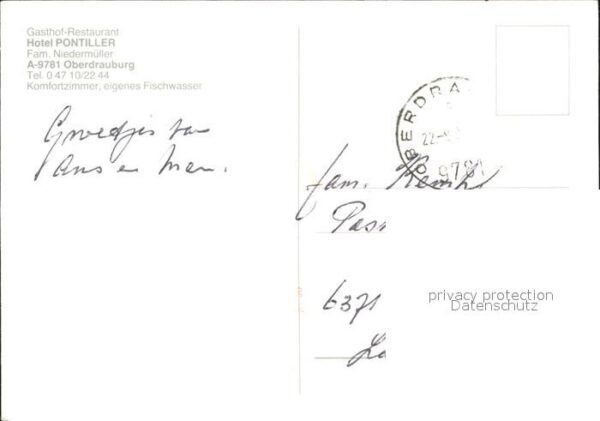 Gasthof-Restaurant
Hotel PONTILLER
Fam. Niedermüller
A-9781 Oberdrauburg
Tel. 0 47 10/22 44
Komfortzimmer, eigenes Fischwasser
OBERDRA
22
9781
Groedjes van
Ans en
fam.
Pas
6371
La
privacy protection
Datenschutz